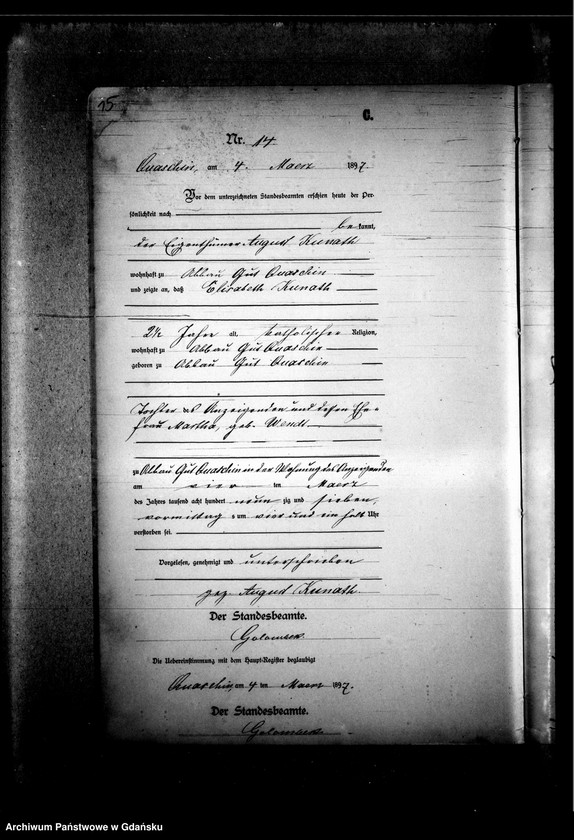 15
C.
Nr. 14
Quaschin, am 4. Maerz 1897.
Vor dem unterzeichneten Standesbeamten erschien heute der Per-
sönlichkeit nach
bekannt,
der Eigenthümer August Kunath
wohnhaft zu Abbau Gut Quaschin
und zeigte an, daß Elisabeth Kunath
2½ Jahre alt, katholischer Religion,
wohnhaft zu Abbau Gut Quaschin
geboren zu Abbau Gut Quaschin
Tochter des Anzeigenden und dessen Ehe-
frau Martha, geb. Wendt
zu Abbau Gut Quaschin in der Wohnung des Anzeigenden
am vier ten Maerz
des Jahres tausend acht hundert neun zig und sieben,
vormittags um vier und ein halb Uhr
verstorben sei.
Vorgelesen, genehmigt und unterschrieben
gez. August Kunath
Der Standesbeamte.
Golombek
Die Uebereinstimmung mit dem Haupt-Register beglaubigt
Quaschin, am 4 ten Maerz 1897.
Der Standesbeamte.
Golombek
Archiwum Państwowe w Gdańsku